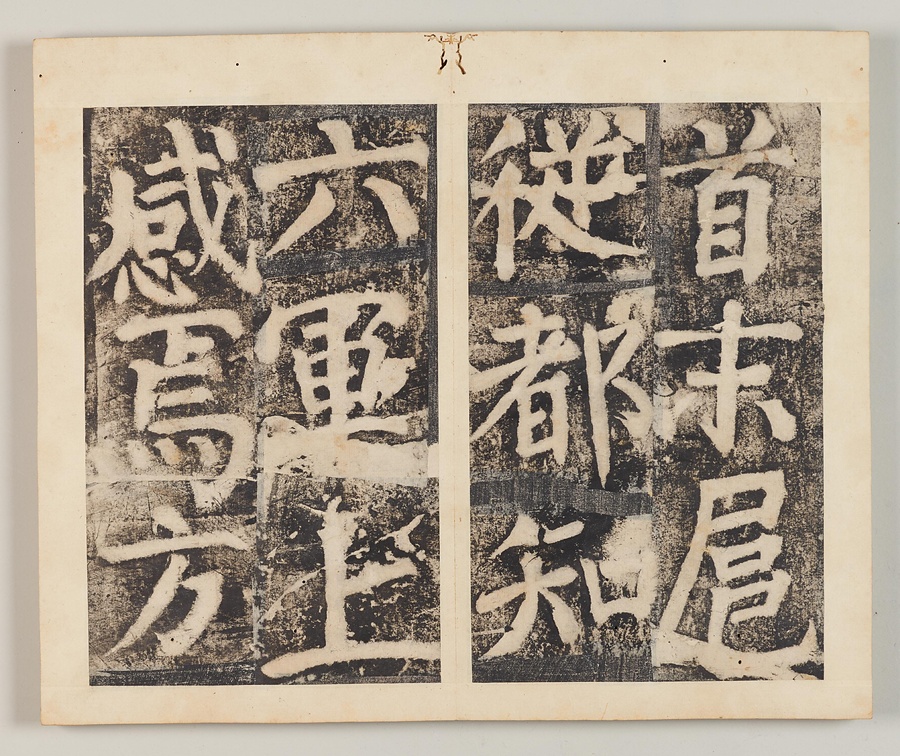 首末扈
從都知
六軍上
感焉方